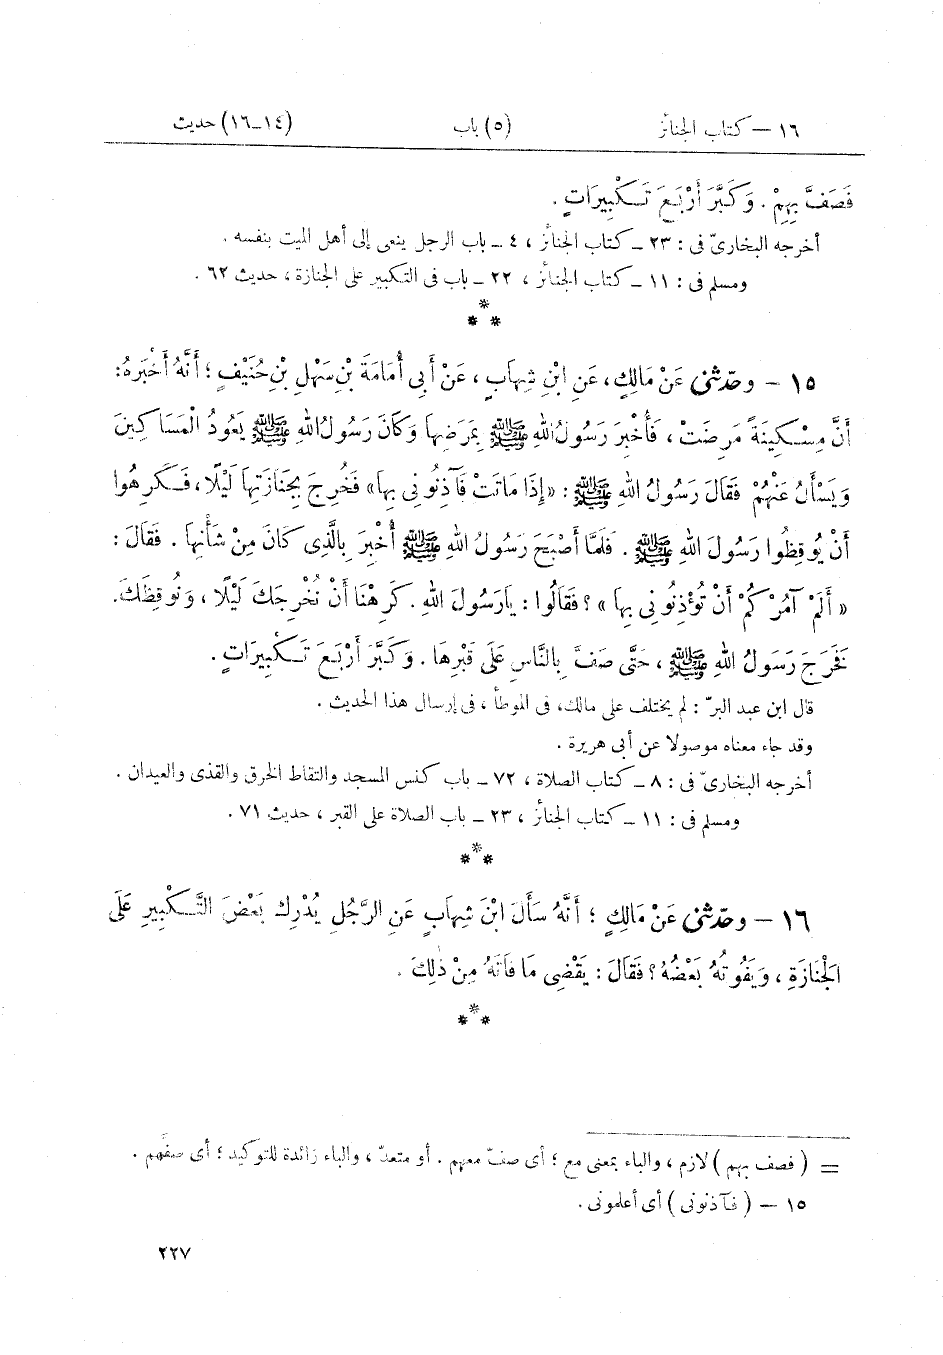 ١٦ – كتاب الجنائز (٥) باب (١٤–١٦) حديث
فَصَفَّ بِهِمْ . وَكَبَّرَ أَرْبَعَ تَكْبِيرَاتٍ .
أخرجه البخارىّ فى : ٢٣ – كتاب الجنائز ، ٤ – باب الرجل ينعى إلى أهل الميت بنفسه .
ومسلم فى : ١١ – كتاب الجنائز ، ٢٢ – باب فى التكبير على الجنازة ، حديث ٦٢ .
***
١٥ – وحدّثنى عَنْ مَالِكٍ، عَنِ ابْنِ شِهَابٍ ، عَنْ أَبِى أُمَامَةَ بْنِ سَهْلِ بْنِ حُنَيْفٍ ؛ أَنَّهُ أَخْبَرَهُ:
أَنَّ مِسْكِينَةً مَرِضَتْ ، فَأُخْبِرَ رَسُولُ اللهِ ﷺ بِمَرَضِهَا وَكَانَ رَسُولُ اللهِ ﷺ يَعُودُ الْمَسَاكِينَ
وَيَسْأَلُ عَنْهُمْ فَقَالَ رَسُولُ اللهِ ﷺ : «إِذَا مَاتَتْ فَآذِنُونِى بِهَا» فَخُرِجَ بِجَنَازَتِهَا لَيْلًا، فَكَرِهُوا
أَنْ يُوقِظُوا رَسُولَ اللهِ ﷺ . فَلَمَّا أَصْبَحَ رَسُولُ اللهِ ﷺ أُخْبِرَ بِالَّذِى كَانَ مِنْ شَأْنِهَا . فَقَالَ :
« أَلَمْ آمُرْكُمْ أَنْ تُؤْذِنُونِى بِهَا » ؟ فَقَالُوا : يَا رَسُولَ اللهِ . كَرِهْنَا أَنْ نُخْرِجَكَ لَيْلًا ، وَنُوقِظَكَ.
فَخَرَجَ رَسُولُ اللهِ ﷺ ، حَتَّى صَفَّ بِالنَّاسِ عَلَى قَبْرِهَا . وَكَبَّرَ أَرْبَعَ تَكْبِيرَاتٍ .
قال ابن عبد البرّ : لم يختلف على مالك، فى الموطأ ، فى إرسال هذا الحديث .
وقد جاء معناه موصولا عن أبى هريرة .
أخرجه البخارىّ فى : ٨ – كتاب الصلاة ، ٧٢ – باب كنس المسجد والتقاط الخرق والقذى والعيدان .
ومسلم فى : ١١ – كتاب الجنائز ، ٢٣ – باب الصلاة على القبر ، حديث ٧١ .
***
١٦ – وحدّثنى عَنْ مَالِكٍ ؛ أَنَّهُ سَأَلَ ابْنَ شِهَابٍ عَنِ الرَّجُلِ يُدْرِكُ بَعْضَ التَّكْبِيرِ عَلَى
الْجَنَازَةِ ، وَيَفُوتُهُ بَعْضُهُ ؟ فَقَالَ : يَقْضِى مَا فَاتَهُ مِنْ ذٰلِكَ .
***
= ( فصف بهم ) لازم ، والباء بمعنى مع ؛ أى صفّ معهم . أو متعدّ ، والباء زائدة للتوكيد ؛ أى صفّهم .
١٥ – ( فآذنونى ) أى أعلمونى .
٢٢٧